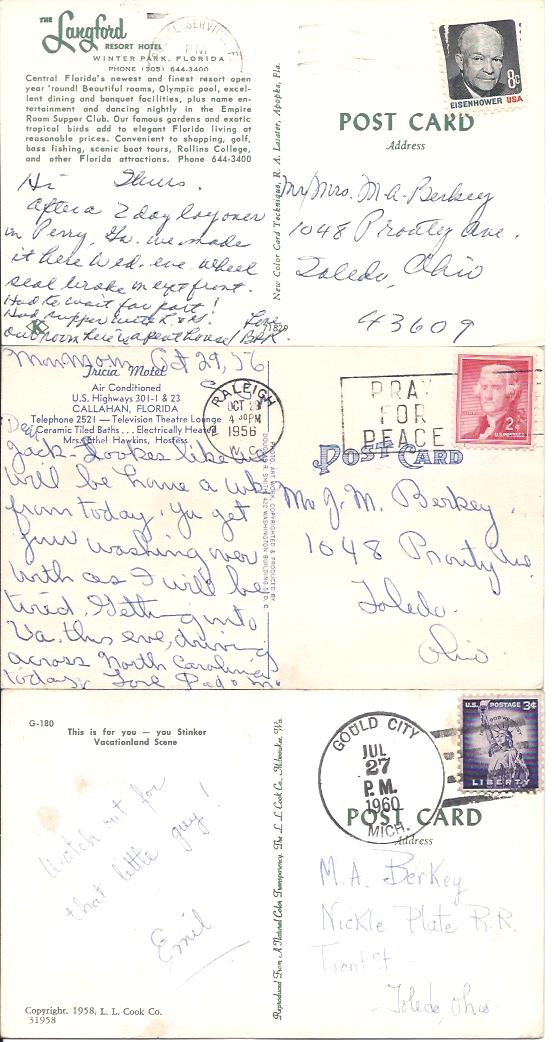 THE Langford
RESORT HOTEL
WINTER PARK, FLORIDA
PHONE (305) 644-3400
Central Florida's newest and finest resort open
year 'round! Beautiful rooms, Olympic pool, excel-
lent dining and banquet facilities, plus name en-
tertainment and dancing nightly in the Empire
Room Supper Club. Our famous gardens and exotic
tropical birds add to elegant Florida living at
reasonable prices. Convenient to shopping, golf,
bass fishing, scenic boat tours, Rollins College,
and other Florida attractions. Phone 644-3400
Hi Thurs.
After a 2 day layover
in Perry, Ga. we made
it here Wed. eve. Wheel
seal broke on rt front.
Had to wait for part!
Had supper with
Our room here is a penthouse! Love
K
71829
New Color Card Technique, R. A. Laister, Apopka, Fla.
PM
8c
EISENHOWER USA
POST CARD
Address
Mr/Mrs. M A. Berkey
1048 Prouty Ave.
Toledo, Ohio
43609
Mon Morn Oct 29, 56
Tricia Motel
Air Conditioned
U.S. Highways 301-1 & 23
CALLAHAN, FLORIDA
Telephone 2521 — Television Theatre Lounge
Ceramic Tiled Baths . . . Electrically Heated
Mrs. Ethel Hawkins, Hostess
Dear
Jack - Looks like we
will be home a wk
from today. Ya get
your washing over
with as I will be
tired. Getting into
Va. this eve, driving
across North Carolina
today. Love Pa & Ma
RALEIGH
OCT 29
4 30 PM
1956
N. C.
PRAY
FOR
PEACE
2c
U.S. POSTAGE
POST CARD
Mr J. M. Berkey
1048 Prouty Ave
Toledo.
Ohio.
G-180
This is for you — you Stinker
Vacationland Scene
Watch out for
that little guy!
Emil
Copyright, 1958, L. L. Cook Co.
31958
Reproduced From A Natural Color Transparency. The L. L. Cook Co., Milwaukee, Wis.
GOULD CITY
JUL
27
P.M.
1960
MICH.
U.S. POSTAGE 3¢
LIBERTY
POST CARD
Address
M.A. Berkey
Nickle Plate R.R.
Front St
Toledo, Ohio